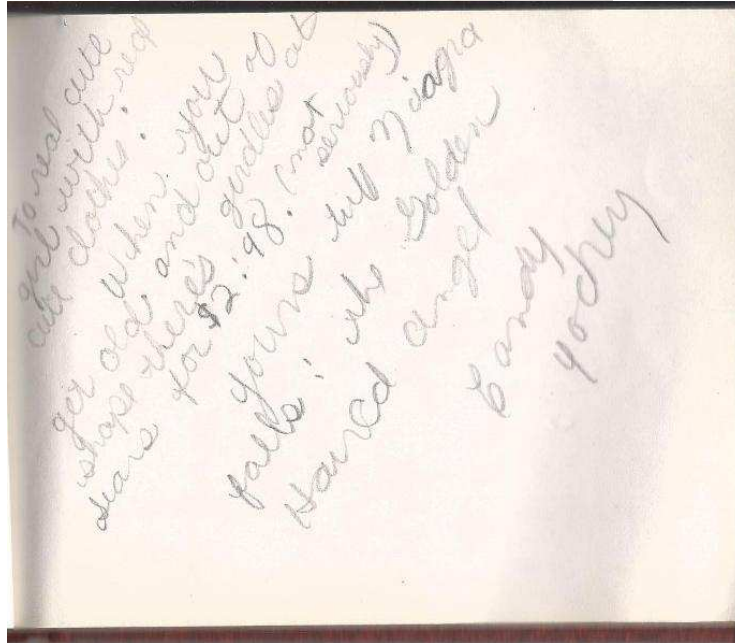 To real cute
girl with real
cute clothes.
When you
get old and out of
shape there's girdles at
sears for $2.98. (not
seriously)
yours till Niagra
falls! the Golden
Haired angel
Candy